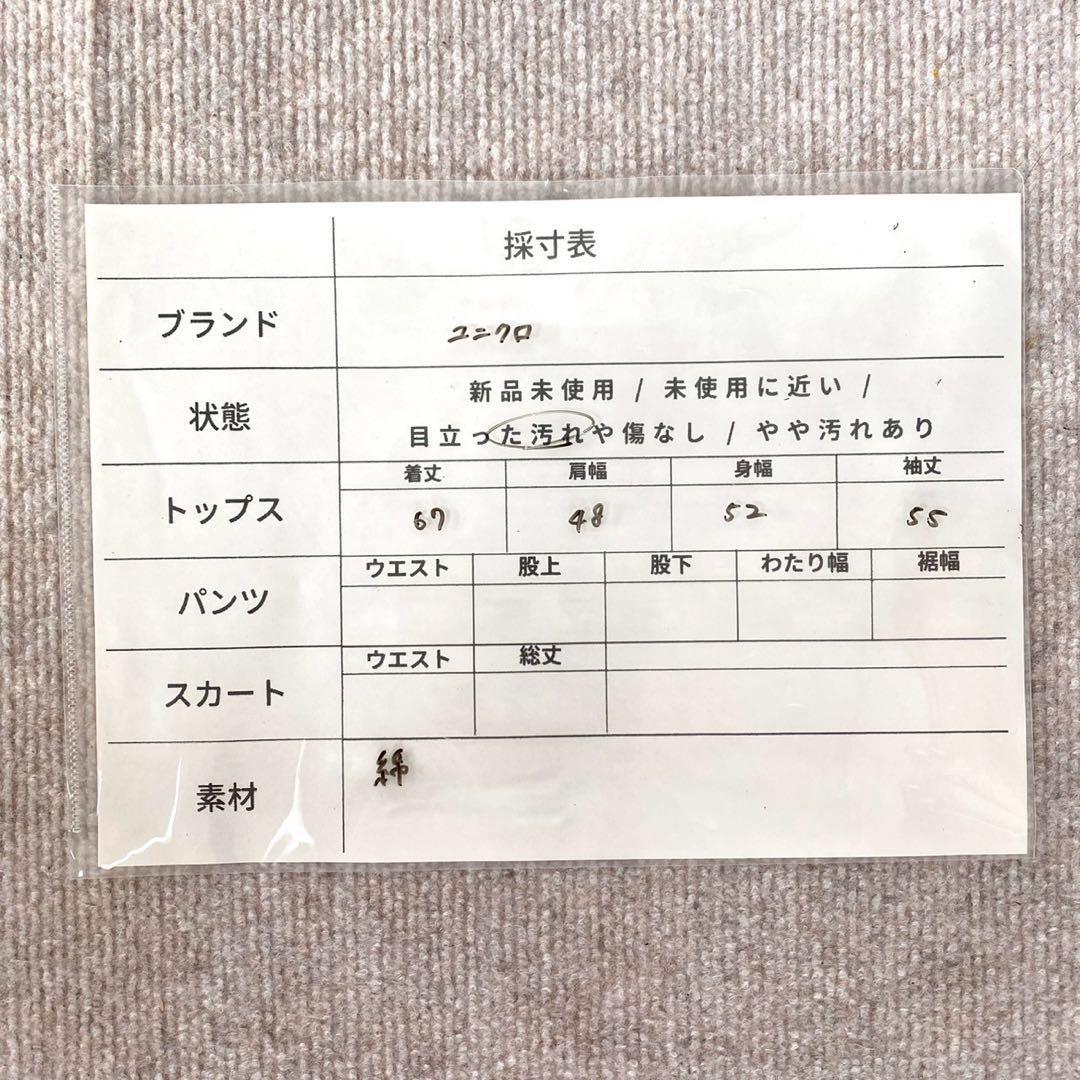 採寸表
ブランド
ユニクロ
状態
新品未使用 / 未使用に近い /
目立った汚れや傷なし / やや汚れあり
トップス
着丈 肩幅 身幅 袖丈
67 48 52 55
パンツ
ウエスト 股上 股下 わたり幅 裾幅
スカート
ウエスト 総丈
素材
綿